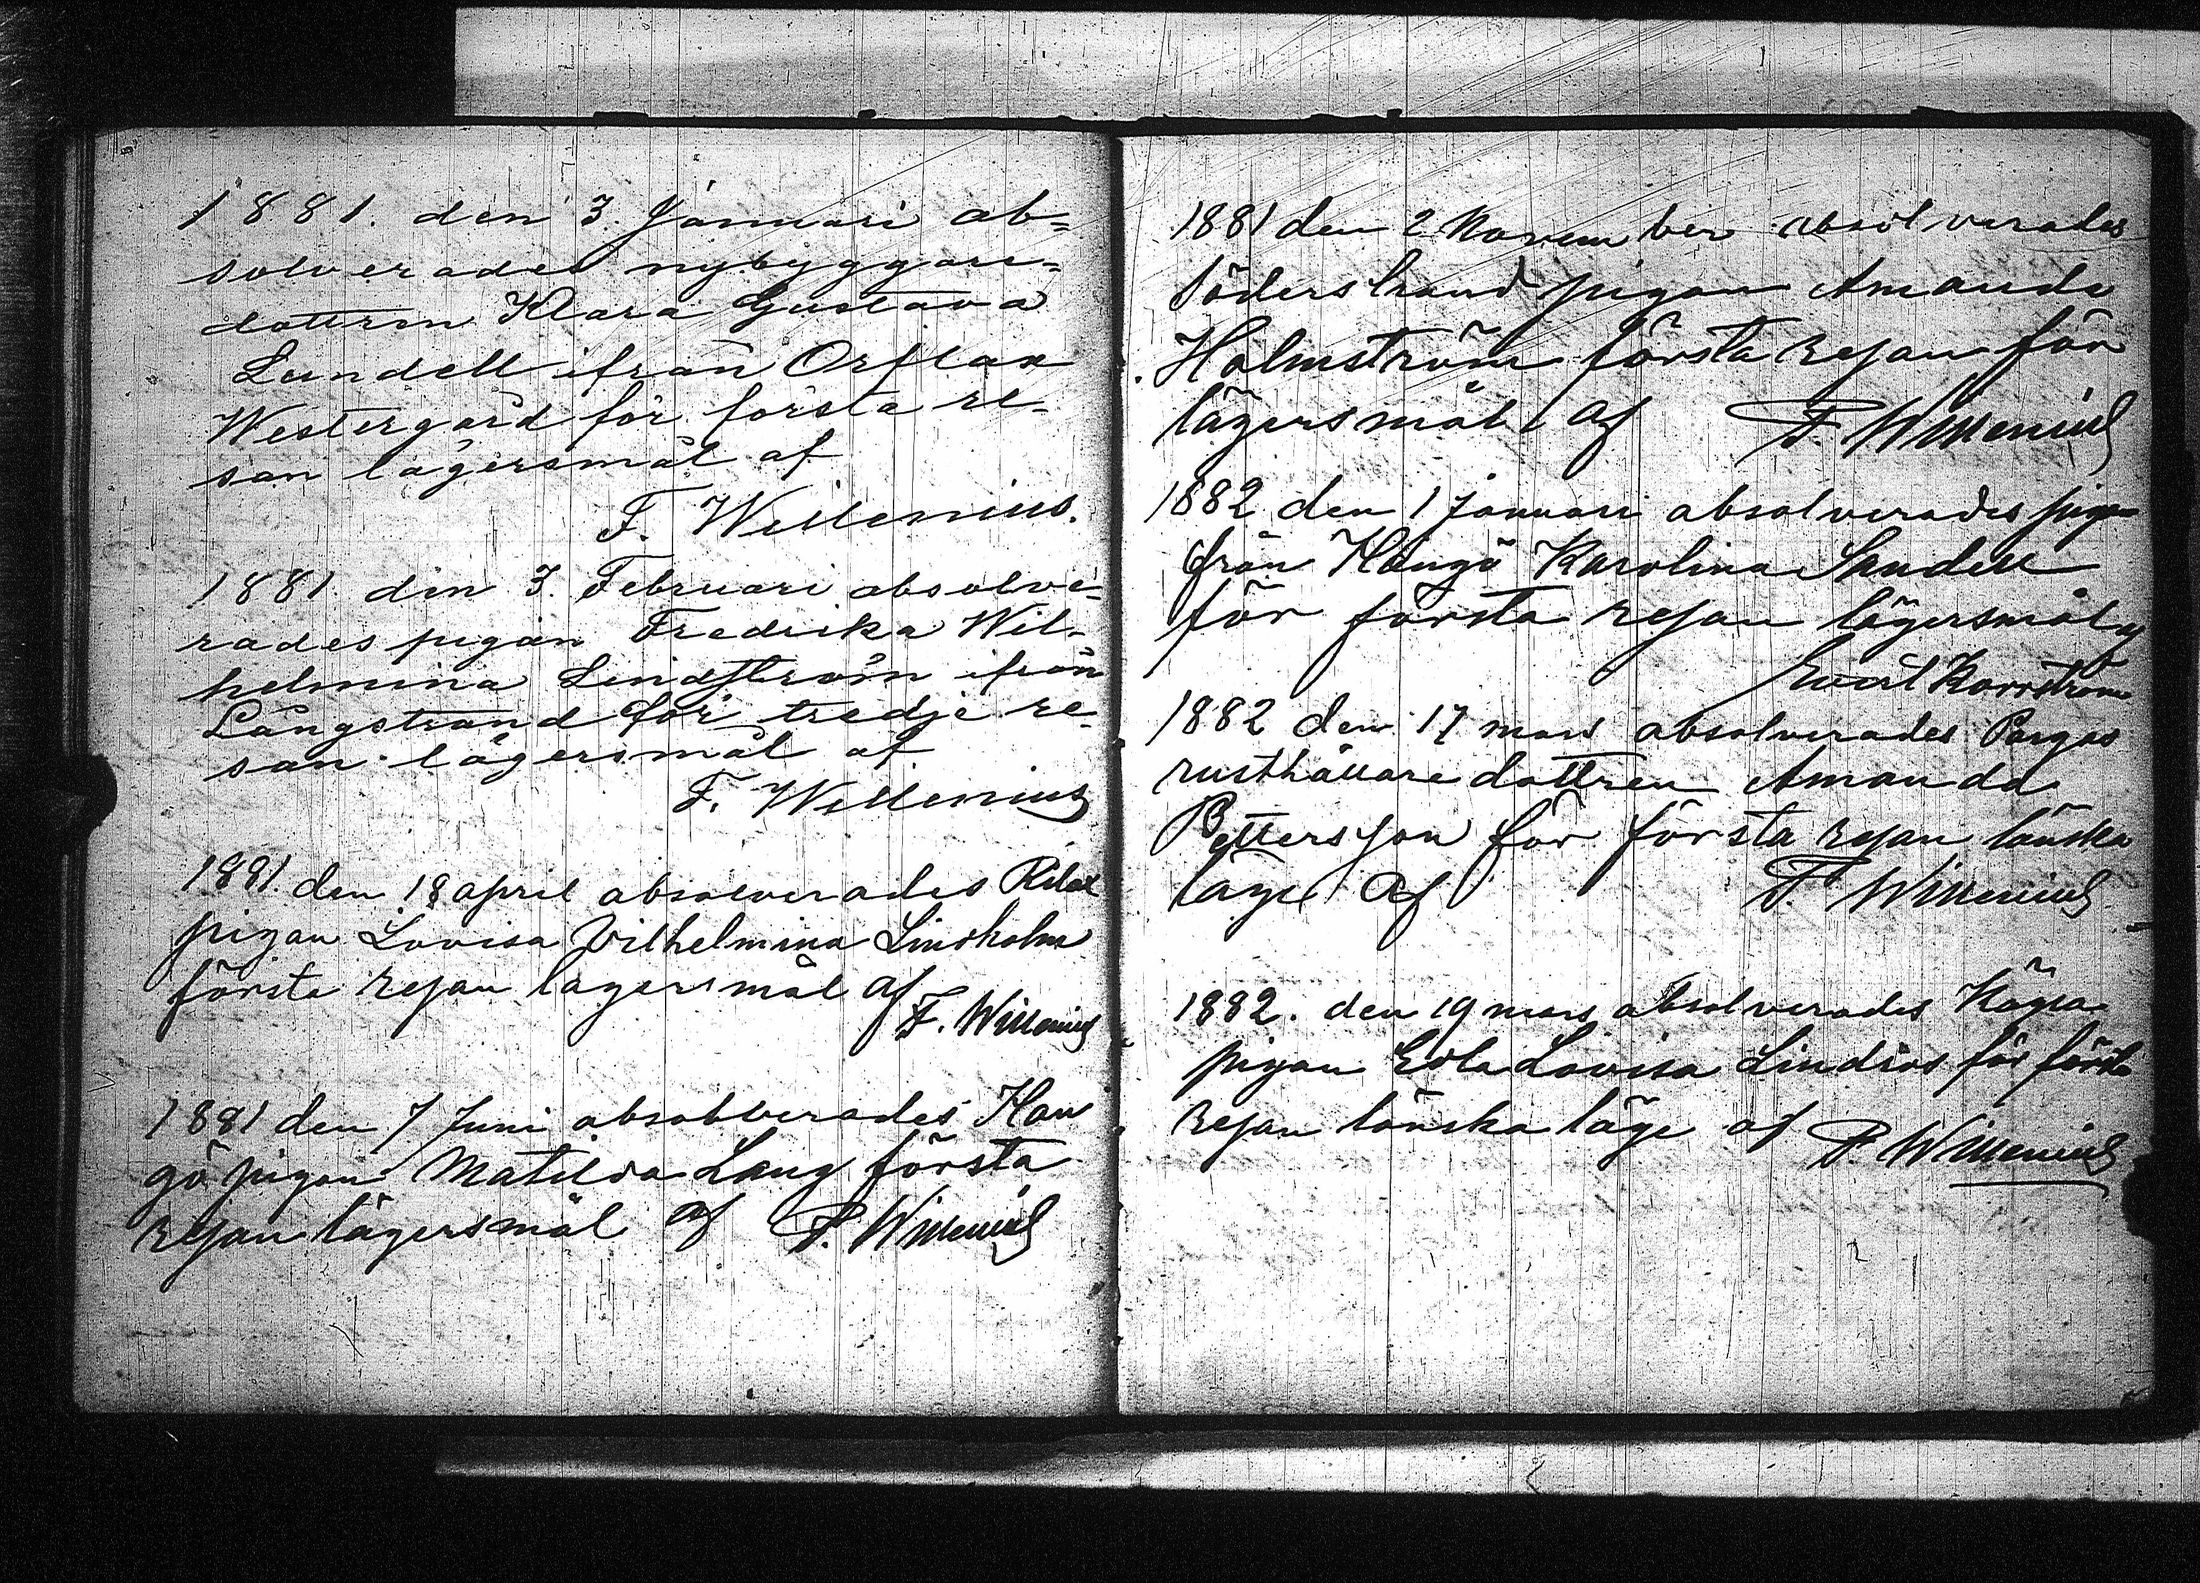 1881. den 3. Januari ab=
solverades nybyggare=
dottren Klara Gustava
Lundell ifrån Orslax
Westergård för första re-
san lägersmål af
F. Willenius.
1881. den 3. Februari absolve=
rades pigan Fredrika Wil-
helmina Lindström ifrån
Långstrand för tredje re-
san lägersmål af
F. Willenius
1881. den 18 april absolverades Rilax
pigan Lovisa Vilhelmina Lindholm
första resan lägersmål af
F. Willenius
1881 den 7 Juni absolverades Han
gö pigan Matilda Lang första
resan lägersmål af F. Willenius
1881 den 2 November absolverades
Söderstrand pigan Amanda
Holmström första resan för
lägersmål af F. Willenius
1882 den 1 Januari absolverades pigan
från Hangö Karolina Sandell
för första resan lägersmål af
Evert
1882 den 17 mars absolverades Pargas
rusthållare dottren Amanda
Pettersson för första resan lönska
läge af F. Willenius
1882. den 19 mars absolverades
pigan Edla Lovisa Lindroos för första
resan lönska läge af F. Willenius